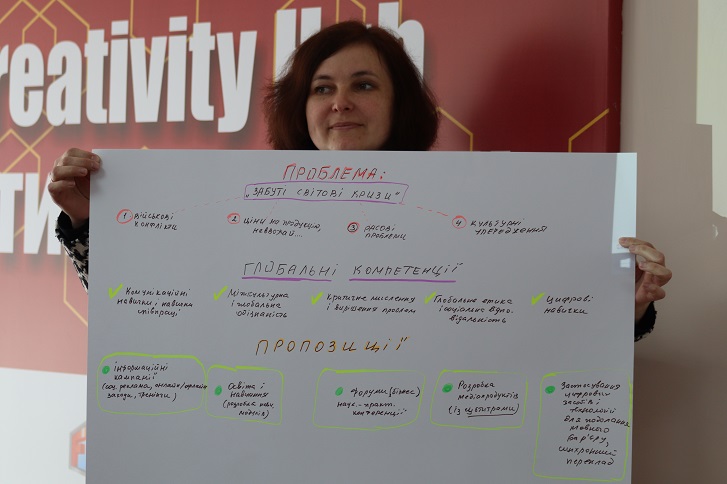 reativity Hub
ТИ
ПРОБЛЕМА:
„ЗАБУТІ СВІТОВІ КРИЗИ"
1 ВІЙСЬКОВІ КОНФЛІКТИ
2 ЦІНИ НА ПРОДУКЦІЮ, НЕВРОЖАЙ...
3 РАСОВІ ПРОБЛЕМИ
4 КУЛЬТУРНІ УПЕРЕДЖЕННЯ
ГЛОБАЛЬНІ КОМПЕТЕНЦІЇ
Комунікаційні
навички і навички
співпраці
Міжкультурна
і глобальна
обізнаність
Критичне мислення
і вирішення проблем
Глобальна етика
і соціальна відпо-
відальність
Цифрові
навички
ПРОПОЗИЦІЇ
Інформаційні
кампанії
(соц. реклама, онлайн/офлайн
заходи, тренінги)
Освіта і
навчання
(розробка навч.
модулів)
Форуми (бізнес)
наук.-практ.
конференції
Розробка
медіапродуктів
(із субтитрами)
Застосування
цифрових
засобів і
технологій
для подолання
мовного
бар'єру,
синхронний
переклад